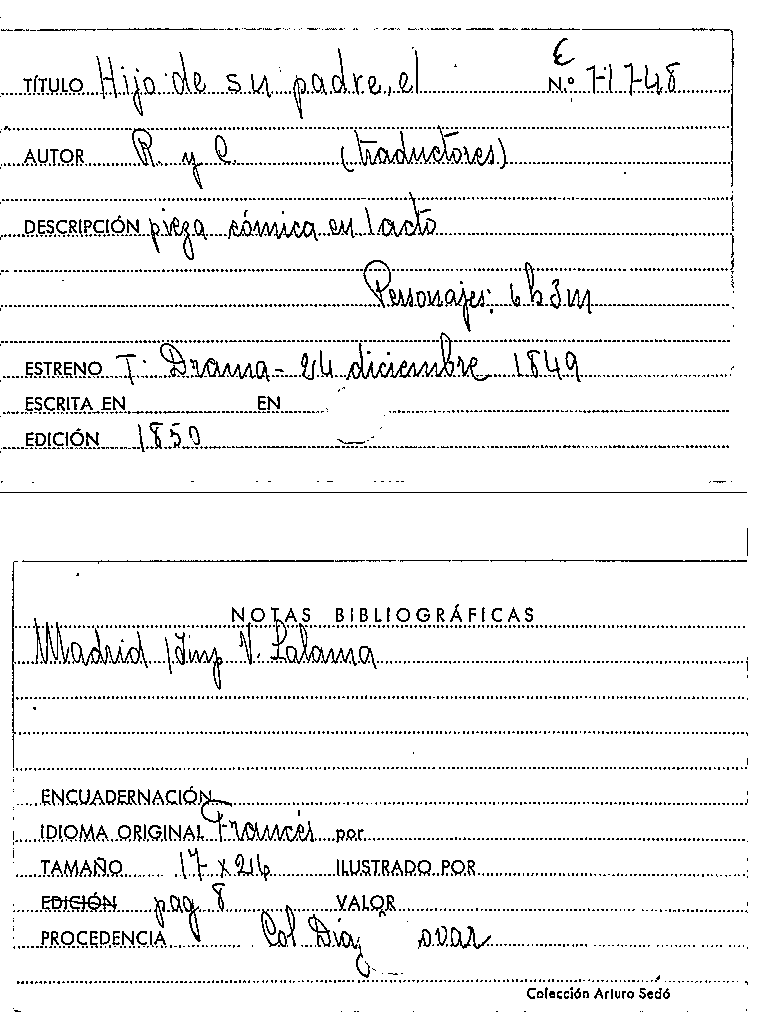 TÍTULO Hijo de su padre, el
E
N.º 7-17-48
AUTOR R. y C. (traductores)
DESCRIPCIÓN pieza cómica en 1 acto
Personajes: 6 h 3 m
ESTRENO T. Drama - 24 diciembre 1849
ESCRITA EN EN
EDICIÓN 1850
NOTAS BIBLIOGRÁFICAS
Madrid / Imp V. Lalama
ENCUADERNACIÓN
IDIOMA ORIGINAL Francés por
TAMAÑO 17 x 26 ILUSTRADO POR
EDICIÓN pag 8 VALOR
PROCEDENCIA Col Díaz
Colección Arturo Sedó